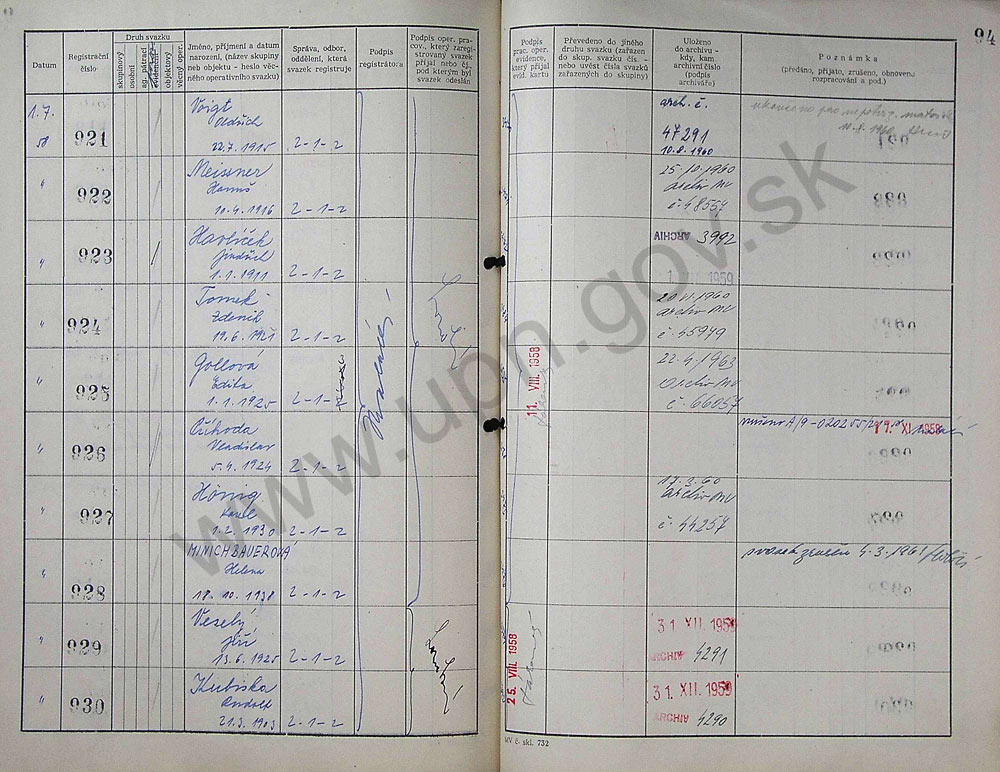 94
Datum
Registrační číslo
Druh svazku
skupinový
osobní
ag. pátrací
objektový
věrný oper.
Jméno, příjmení a datum narození, (název skupiny neb objektu - heslo věčného operativního svazku)
Správa, odbor, oddělení, která svazek registruje
Podpis registrátora
Podpis oper. prac cov., který zaregistrovaný svazek přijal nebo čj., pod kterým byl svazek odeslán
Podpis prac. oper. evidence, který přijal evid. kartu
Převedeno do jiného druhu svazku (zařazen do skup. svazku čís. - nebo uvést čísla svazků zařazených do skupiny)
Uloženo do archivu - kdy, kam archivní číslo (podpis archiváře)
Poznámka
(předáno, přijato, zrušeno, obnoveno rozpracování a pod.)
1.7.
58
921
Voigt
Oldřich
22.7.1915
2-1-2
arch. č.
47291
10.8.1960
922
Meissner
Hanuš
10.4.1916
2-1-2
25.10.1960
archiv MV
č. 48557
923
Havlíček
Jindřich
1.1.1911
2-1-2
ARCHIV 3992
1959
924
Tomek
Zdeněk
19.6.1921
2-1-2
archiv MV
č. 45949
925
Gollová
Edita
1.1.1925
2-1-2
22.4.1963
Archiv MV
č. 66057
11. VIII. 1958
926
Číhoda
Vladislav
5.4.1924
2-1-2
17. XI. 1958
927
Hönig
Karel
1.2.1930
2-1-2
17.3.60
archiv MV
č. 44257
928
MINICHBAUEROVÁ
Helena
18.10.1938
2-1-2
svazek zrušen 4.3.1961
929
Veselý
Jiří
13.6.1925
2-1-2
25. VIII. 1958
31. XII. 1959
ARCHIV 4291
930
Kubiska
Rudolf
21.3.1903
2-1-2
31. XII. 1959
ARCHIV 4290
MV č. skl. 732
www.upn.gov.sk